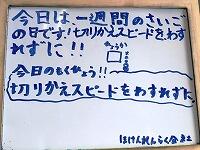 今日は、一週間のさいご
の日です！切りかえスピードをわす
れずに！！
ろうか
今日のもくひょう！！
切りかえスピードをわすれずに
ほけんれんらく会より